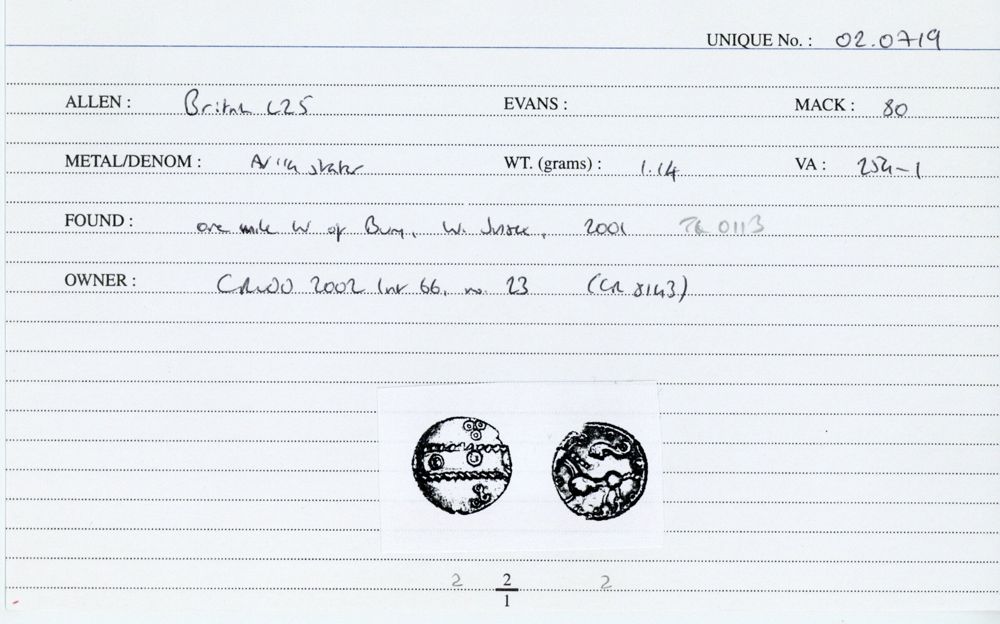 UNIQUE No. : 02.0719
ALLEN : British L25 EVANS : MACK : 80
METAL/DENOM : AV 1/4 stater WT. (grams) : 1.14 VA : 254-1
FOUND : one mile W of Bury, W. Sussex, 2001 TQ 0113
OWNER : CR 2002 List 66, no. 23 (CR 8143)
2 2 2
1